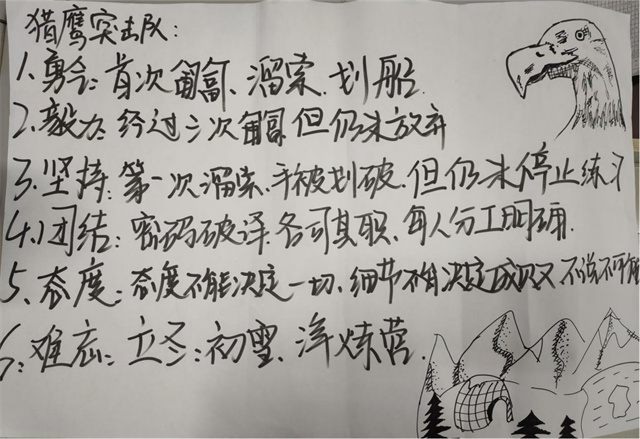 猎鹰突击队:
1、勇气:首次匍匐、溜索、划船
2、毅力:经过三次匍匐但仍未放弃
3、坚持:第一次溜索、手被划破、但仍未停止练习
4、团结:密码破译各司其职、每人分工明确.
5、态度:态度不能决定一切、细节 决定成败又 不说不可能
6、难忘:立冬:初雪、淬炼营.